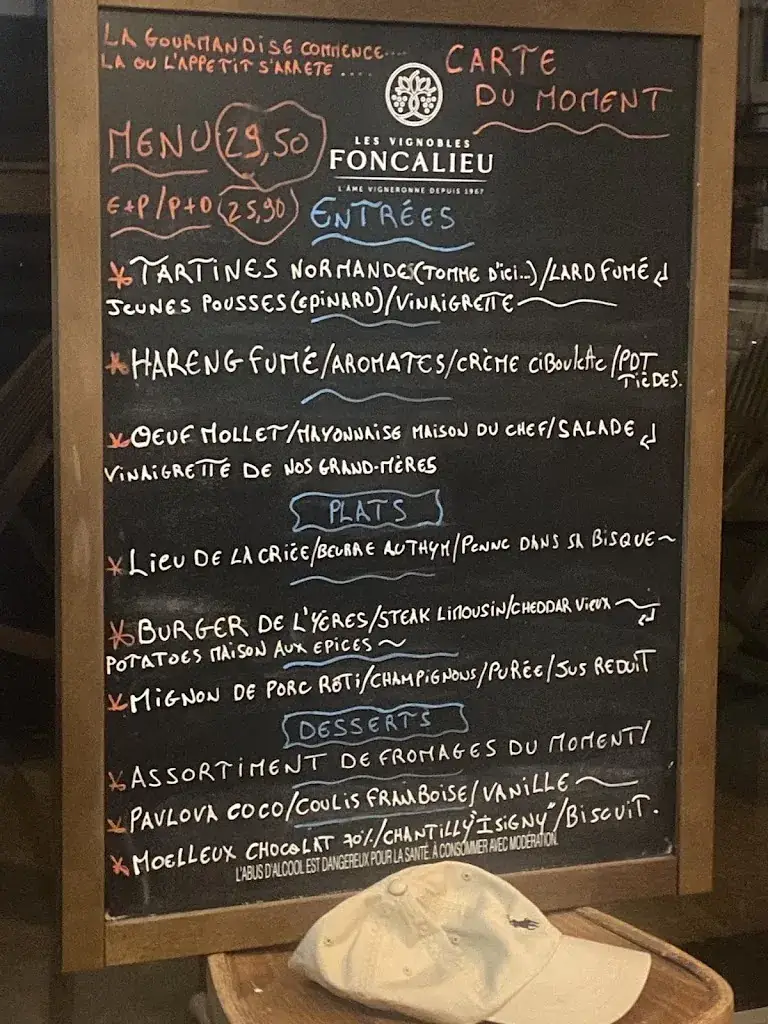 LA GOURMANDISE COMMENCE....
LA OU L'APPETIT S'ARRETE ....
CARTE
DU MOMENT
LES VIGNOBLES
FONCALIEU
L'ÂME VIGNERONNE DEPUIS 1967
MENU 29,50
E+P/P+D 25,90
ENTRÉES
*TARTINES NORMANDES (TOMME D'ICI...)/LARD FUMÉ
JEUNES POUSSES (EPINARD)/VINAIGRETTE
*HARENG FUMÉ/AROMATES/CRÈME CIBOULETTE/PDT
TIÈDES.
*OEUF MOLLET/MAYONNAISE MAISON DU CHEF/SALADE
VINAIGRETTE DE NOS GRAND-MÈRES
PLATS
*LIEU DE LA CRIÉE/BEURRE AU THYM/PENNE DANS SA BISQUE~
*BURGER DE L'YÈRES/STEAK LIMOUSIN/CHEDDAR VIEUX
POTATOES MAISON AUX EPICES~
*MIGNON DE PORC RÔTI/CHAMPIGNONS/PURÉE/JUS REDUIT
DESSERTS
*ASSORTIMENT DE FROMAGES DU MOMENT/
*PAVLOVA COCO/COULIS FRAMBOISE/VANILLE
*MOELLEUX CHOCOLAT 70%/CHANTILLY "ISIGNY"/BISCUIT.
L'ABUS D'ALCOOL EST DANGEREUX POUR LA SANTÉ. À CONSOMMER AVEC MODÉRATION.